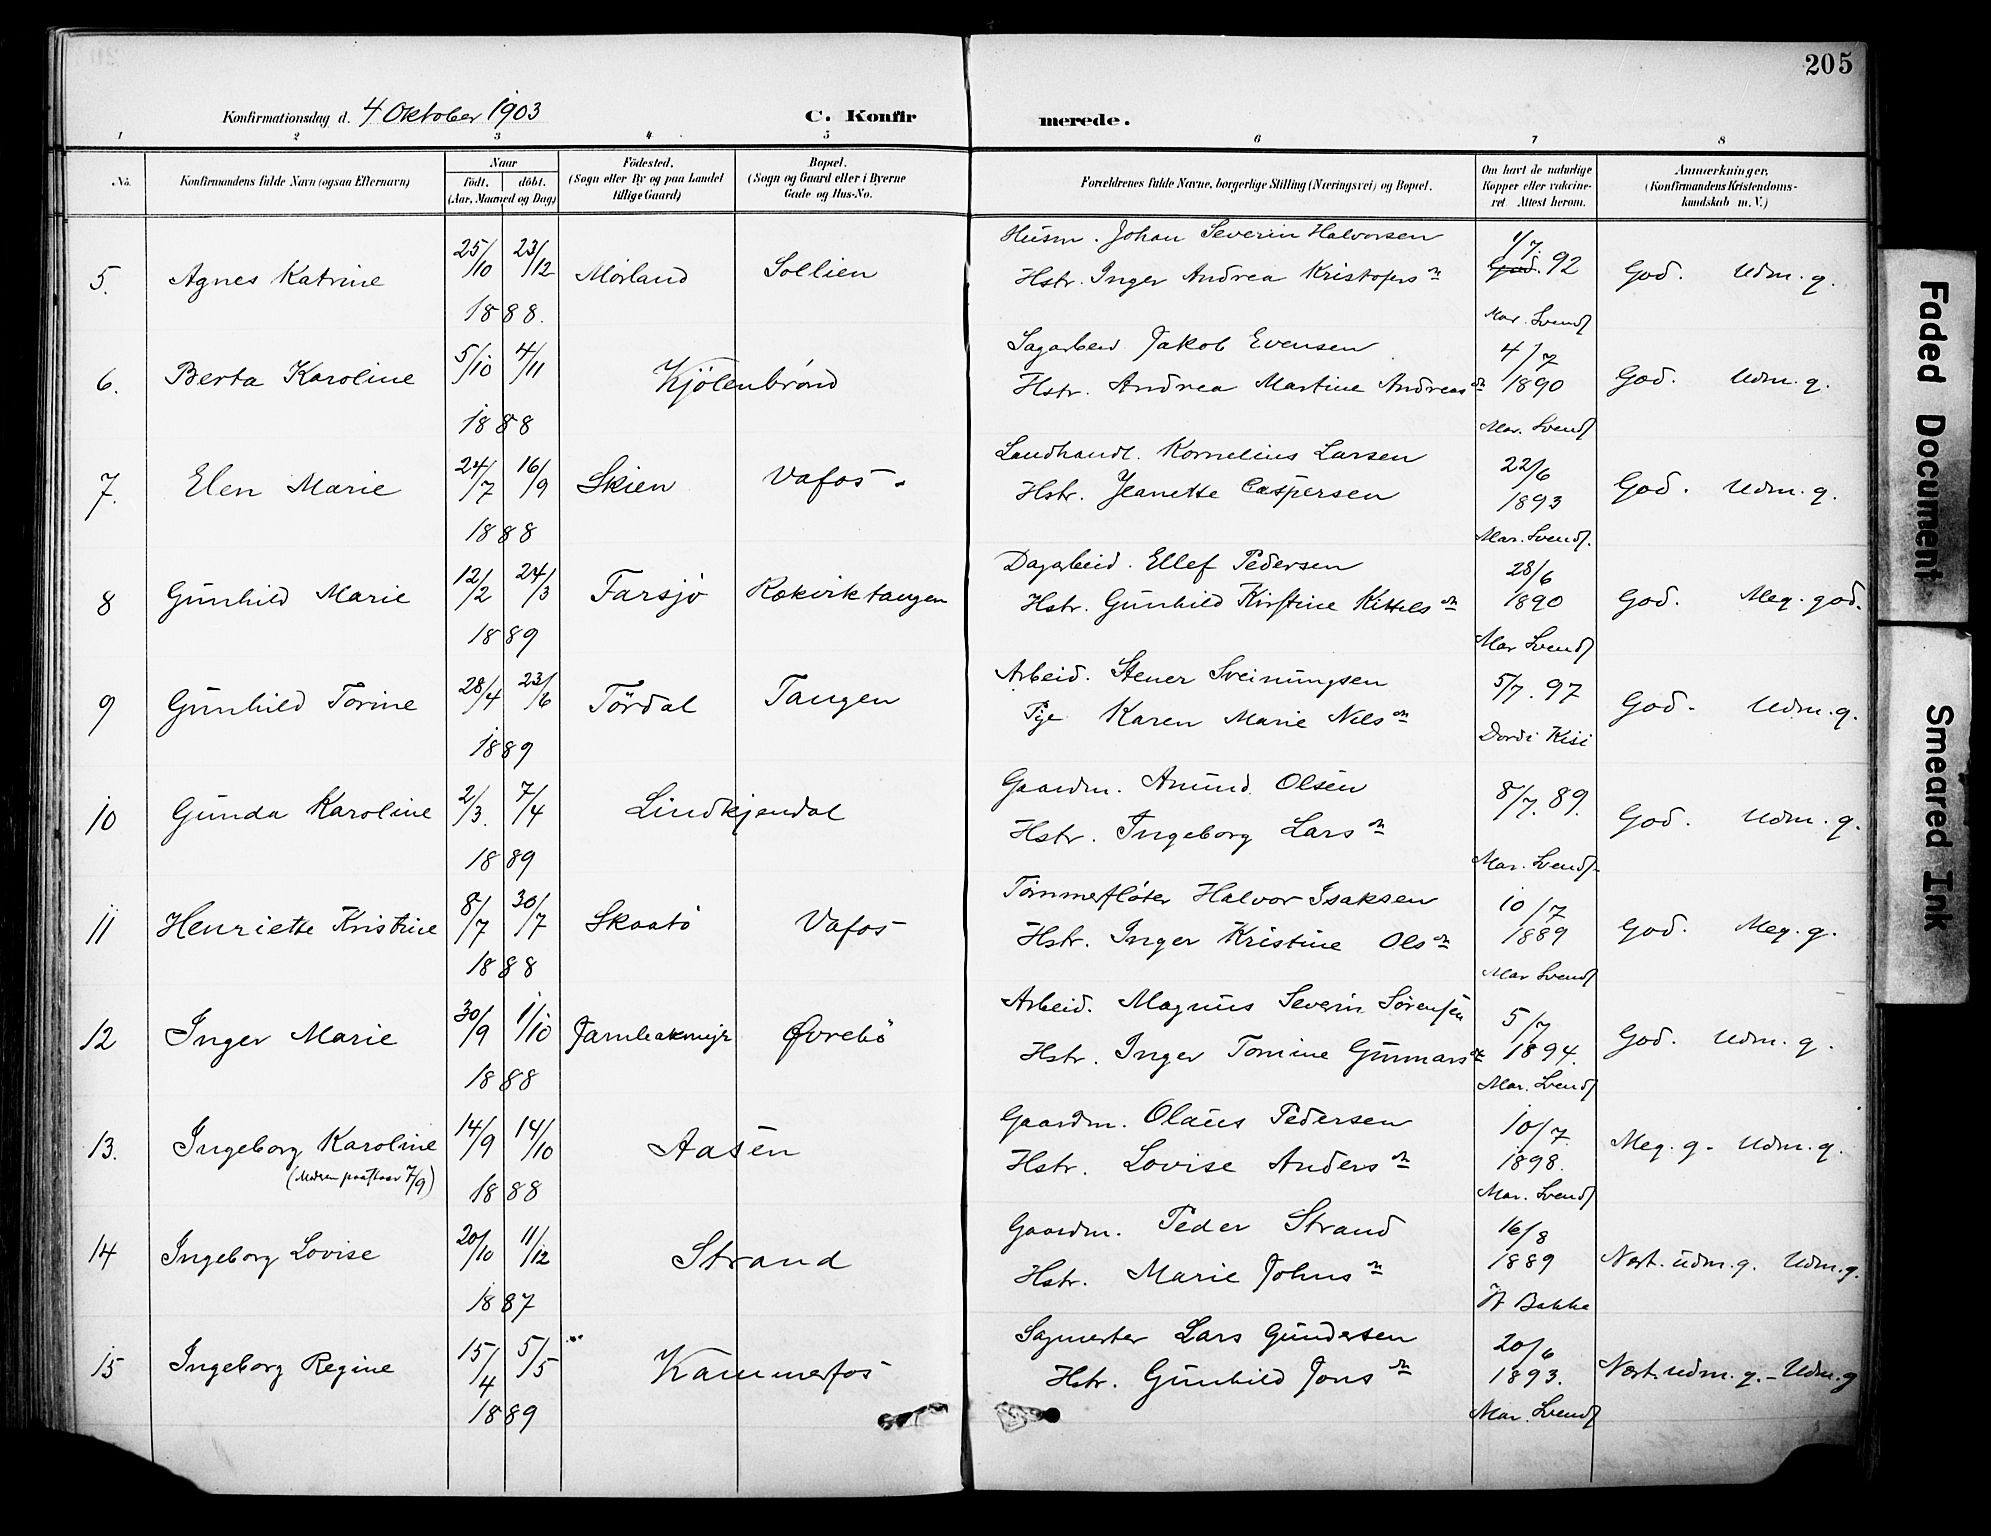 205
Konfirmationsdag d. 4 Oktober 1903 C. Konfirmerede.
1 2 3 4 5 6 7 8
No. Konfirmandens fulde Navn (ogsaa Efternavn) Naar födt. döbt. (Aar, Maaned og Dag) Födested. (Sogn eller By og paa Landet tillige Gaard) Bopæl. (Sogn og Gaard eller i Byerne Gade og Hus-No. Forældrenes fulde Navne, borgerlige Stilling (Næringsvei) og Bopæl. Om havt de naturlige Kopper eller vakcineret. Attest herom. Anmærkninger, (Konfirmandens Kristendomskundskab m. V.)
5. Agnes Katrine 25/10 23/12 1888. Mørland Sollien Husm. Johan Severin Halvorsen
Hstr. Inger Andrea Kristofers dn 1/7 92 Mar. Svends God. Udm. g.
6. Berta Karoline 5/10 4/11 1888 Kjølenbrønd Sagarbeid. Jakob Evensen
Hstr. Andrea Martine Andreas dn 4/7 1890 Mar. Svends God. Udm. g.
7. Elen Marie 24/7 16/9 1888 Skien Vafos. Landhandl. Kornelius Larsen
Hstr. Jeanette Caspersen 22/6 1893 Mar. Svends. God. Udm. g.
8 Gunhild Marie 12/2 24/3 1889 Farsjø Rækviktangen Dagarbeid. Ellef Pedersen
Hstr. Gunhild Kirstine Kittels dn 28/6 1890 Mar Svends God. Meg. god.
9 Gunhild Torine 28/4 23/6 1889 Tørdal Tangen Arbeid. Stener Sveinungsen
Pige Karen Marie Nils dn 5/7. 97 God. Udm. g.
10 Gunda Karoline 2/3. 7/4 1889 Lindkjendal Gaardm. Anund Olsen
Hstr. Ingeborg Lars dn 8/7. 89. Mar. Svends. God. Udm. g.
11 Henriette Kristine 8/7 30/7 1888 Skaatø Vafos Tømmerfløter Halvor Isaksen
Hstr. Inger Kristine Ols dn 10/7 1889 Mar Svends God. Meg. g.
12 Inger Marie 30/9 1/10 1888 Øvrebø Arbeid. Magnus Severin Sørensen
Hstr. Inger Tomine Gunnars dn 5/7 1894. Mar. Svends God. Udm. g.
13. Ingeborg Karoline (Moderen paastaar 7/9) 14/9 14/10 1888 Aasen Gaardm. Olaus Pedersen
Hstr. Lovise Anders dn 10/7 1898. Mar. Svends Meg. g. Udm. g.
14 Ingeborg Lovise 20/10 11/12 1887 Strand Gaardm. Peder Strand
Hstr. Marie Johns dn 16/8 1889 Bakke Næst. udm. g. Udm. g.
15 Ingeborg Regine 15/4 5/5 1889 Kammerfos Sagmester Lars Gundersen
Hstr. Gunhild Jons dn 20/6 1893. Mar. Svends Næst. udm. g. - Udm. g
Faded Document
Smeared Ink